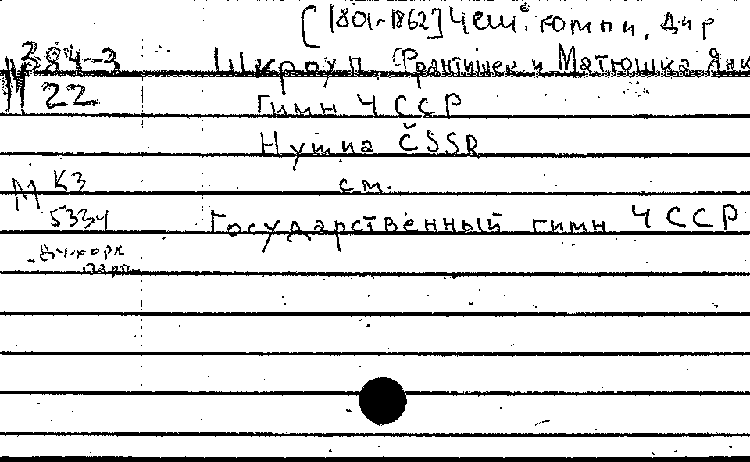 [1801-1862] Чеш. компи, дир
М 384-3 Шкроуп, Франтишек и Матюшка Янк
22 Гимн ЧССР
Нушпа ČSSR
М К3 см.
5334 Государственный гимн ЧССР
парт